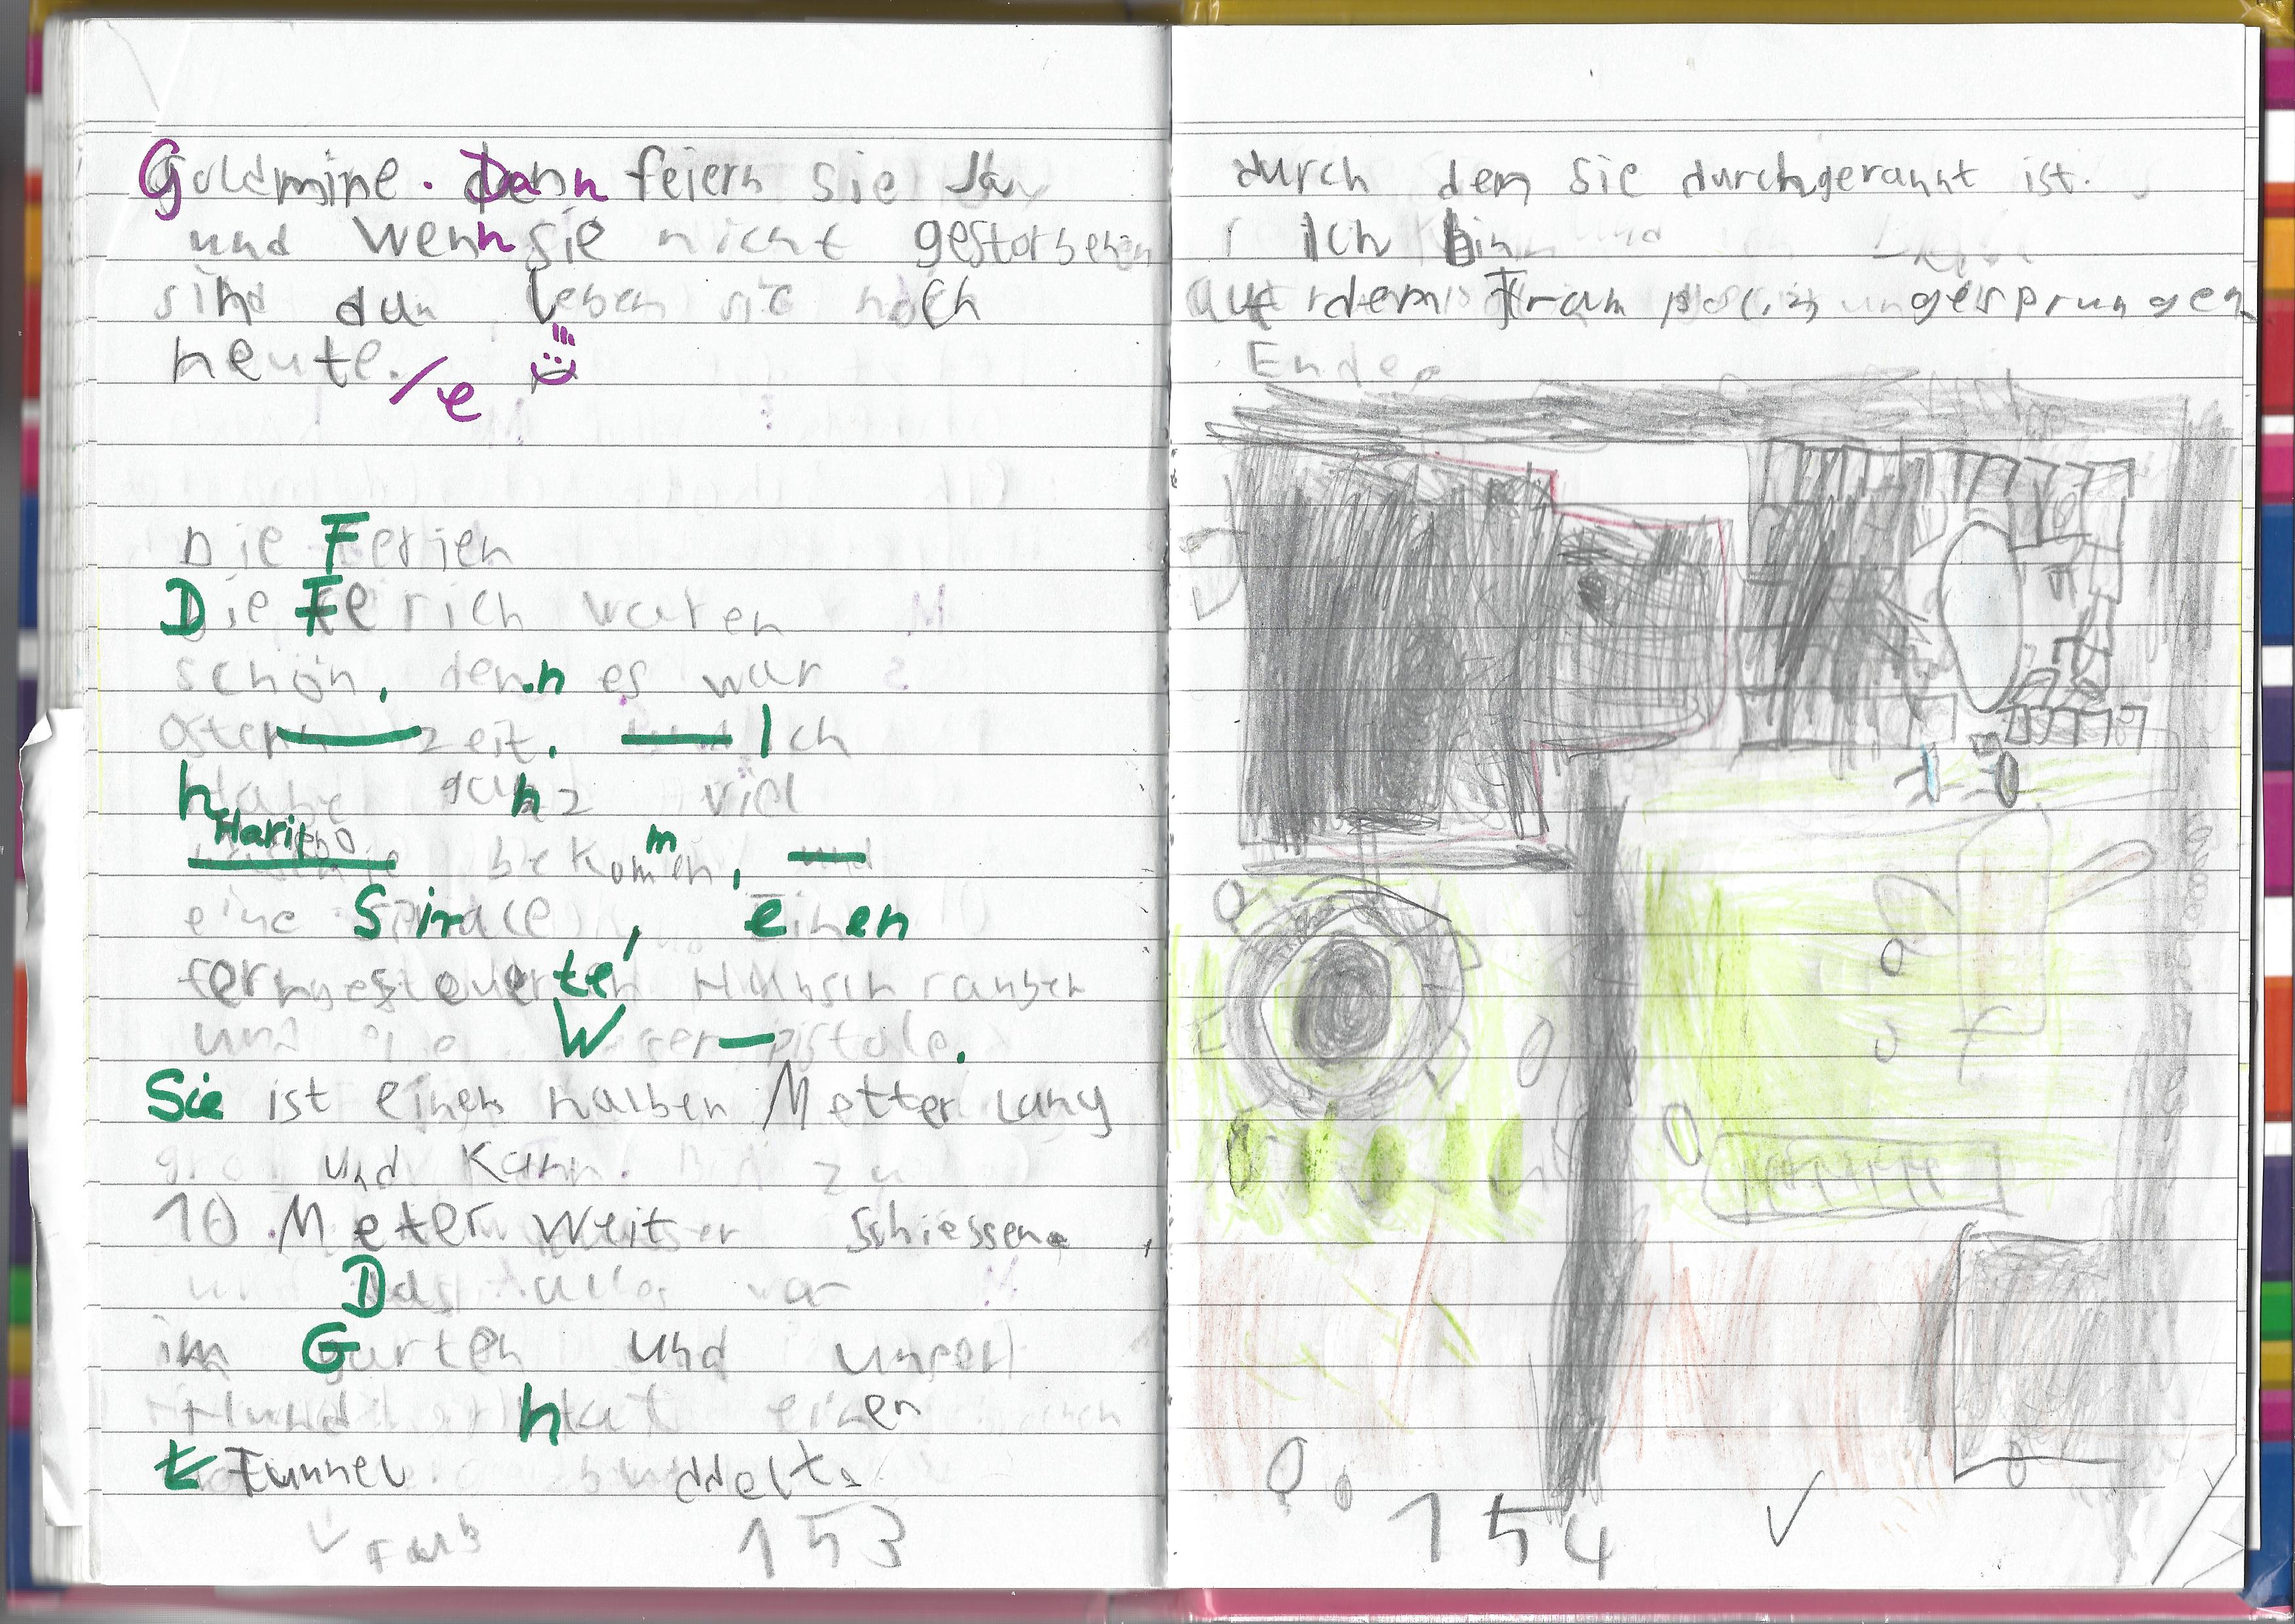 Goldmine. Dann feiern sie
und wenn sie nicht gestorben
sind dan leben sie noch
heute. /e
Die Ferien
Die Ferich waren
schön, denn es war
Ostern zeit. Ich
habe ganz viel
Haribo bekommen,
eine Spirale, einen
ferngesteuerten Hubschrauber
und eine Wasserpistole.
Sie ist einen halben Metter lang
und kann. zu
10 Meter weit schiessen.
Das alles war
im Garten und unser
Hund hat einen
Tunnel buddelt.
153
durch dem sie durchgerannt ist.
Ich bin
auf dem Trampolin gesprungen
Ende
154